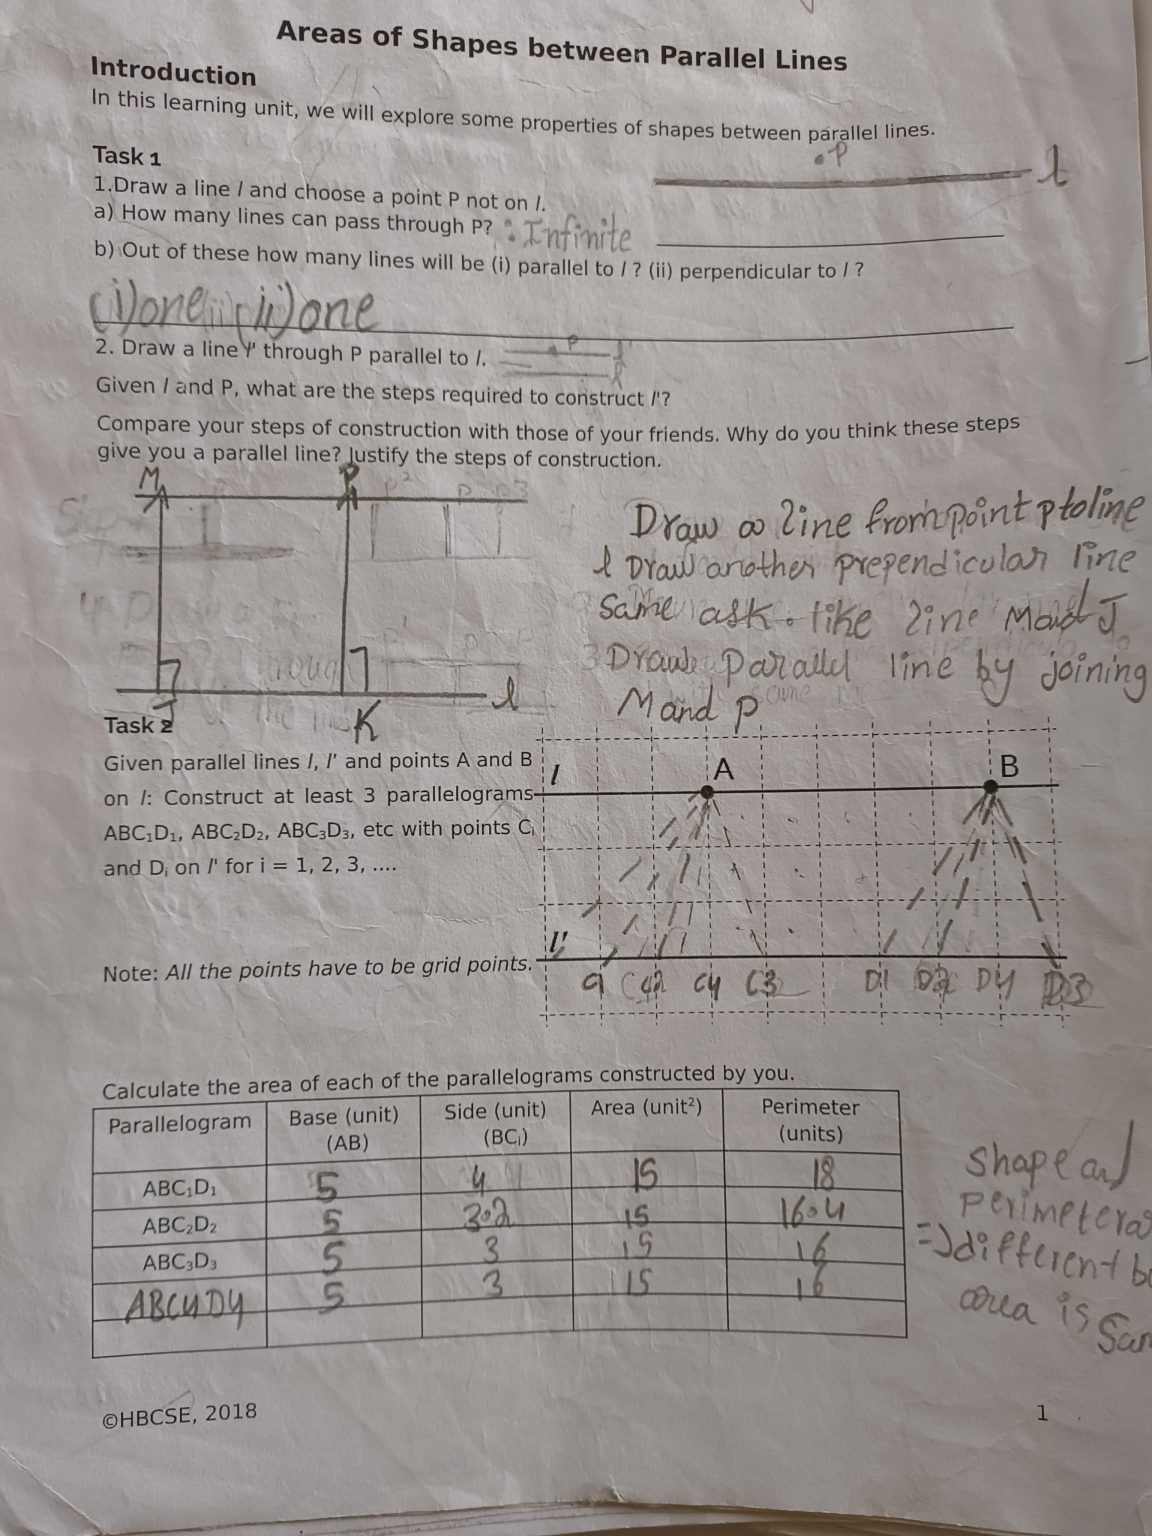 Areas of Shapes between Parallel Lines
Introduction
In this learning unit, we will explore some properties of shapes between parallel lines.
Task 1
1.Draw a line l and choose a point P not on l.
.P
l
a) How many lines can pass through P? : Infinite
b) Out of these how many lines will be (i) parallel to l ? (ii) perpendicular to l ?
(i)one (ii)one
2. Draw a line l' through P parallel to l.
P
l'
l
Given l and P, what are the steps required to construct l'?
Compare your steps of construction with those of your friends. Why do you think these steps
give you a parallel line? Justify the steps of construction.
M P
J K l
Draw a line from point p to line
l Draw another prependicular line
Same ask. like line M and J
Draw parallel line by joining
M and P
Task 2
Given parallel lines l, l' and points A and B
on l: Construct at least 3 parallelograms
ABC₁D₁, ABC₂D₂, ABC₃D₃, etc with points Cᵢ
and Dᵢ on l' for i = 1, 2, 3, ....
Note: All the points have to be grid points.
l A B
l'
C1 C2 C4 C3 D1 D2 D4 D3
Calculate the area of each of the parallelograms constructed by you.
Parallelogram Base (unit) (AB) Side (unit) (BCᵢ) Area (unit²) Perimeter (units)
ABC₁D₁ 5 4 15 18
ABC₂D₂ 5 3.2 15 16.4
ABC₃D₃ 5 3 15 16
ABC4D4 5 3 15 16
Shape and
perimeter
=> different
area is
©HBCSE, 2018
1